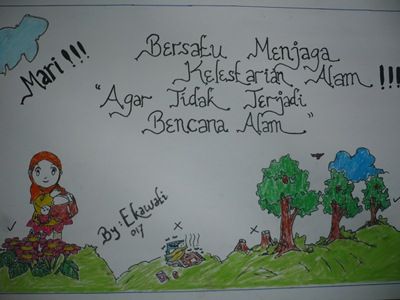 Mari !!!
Bersatu Menjaga
Kelestarian Alam !!!
"Agar Tidak Terjadi
Bencana Alam"
By : Ekawati
017